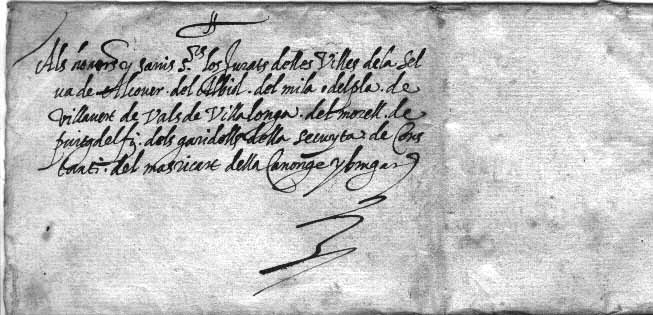 Als honors y savis s.rs los Jurats delles Villes dela Sel
va de Alcover. del Albiol. del mila. edelpla. de
Villavert de Vals de Villalonga. del morell. de
puigdelfi. dels garidells della secuyta. de Cons
tanti. del masricart della Canonge y brugar